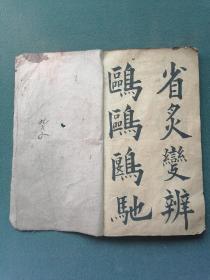 省炙變辨
鷗鷗鷗馳